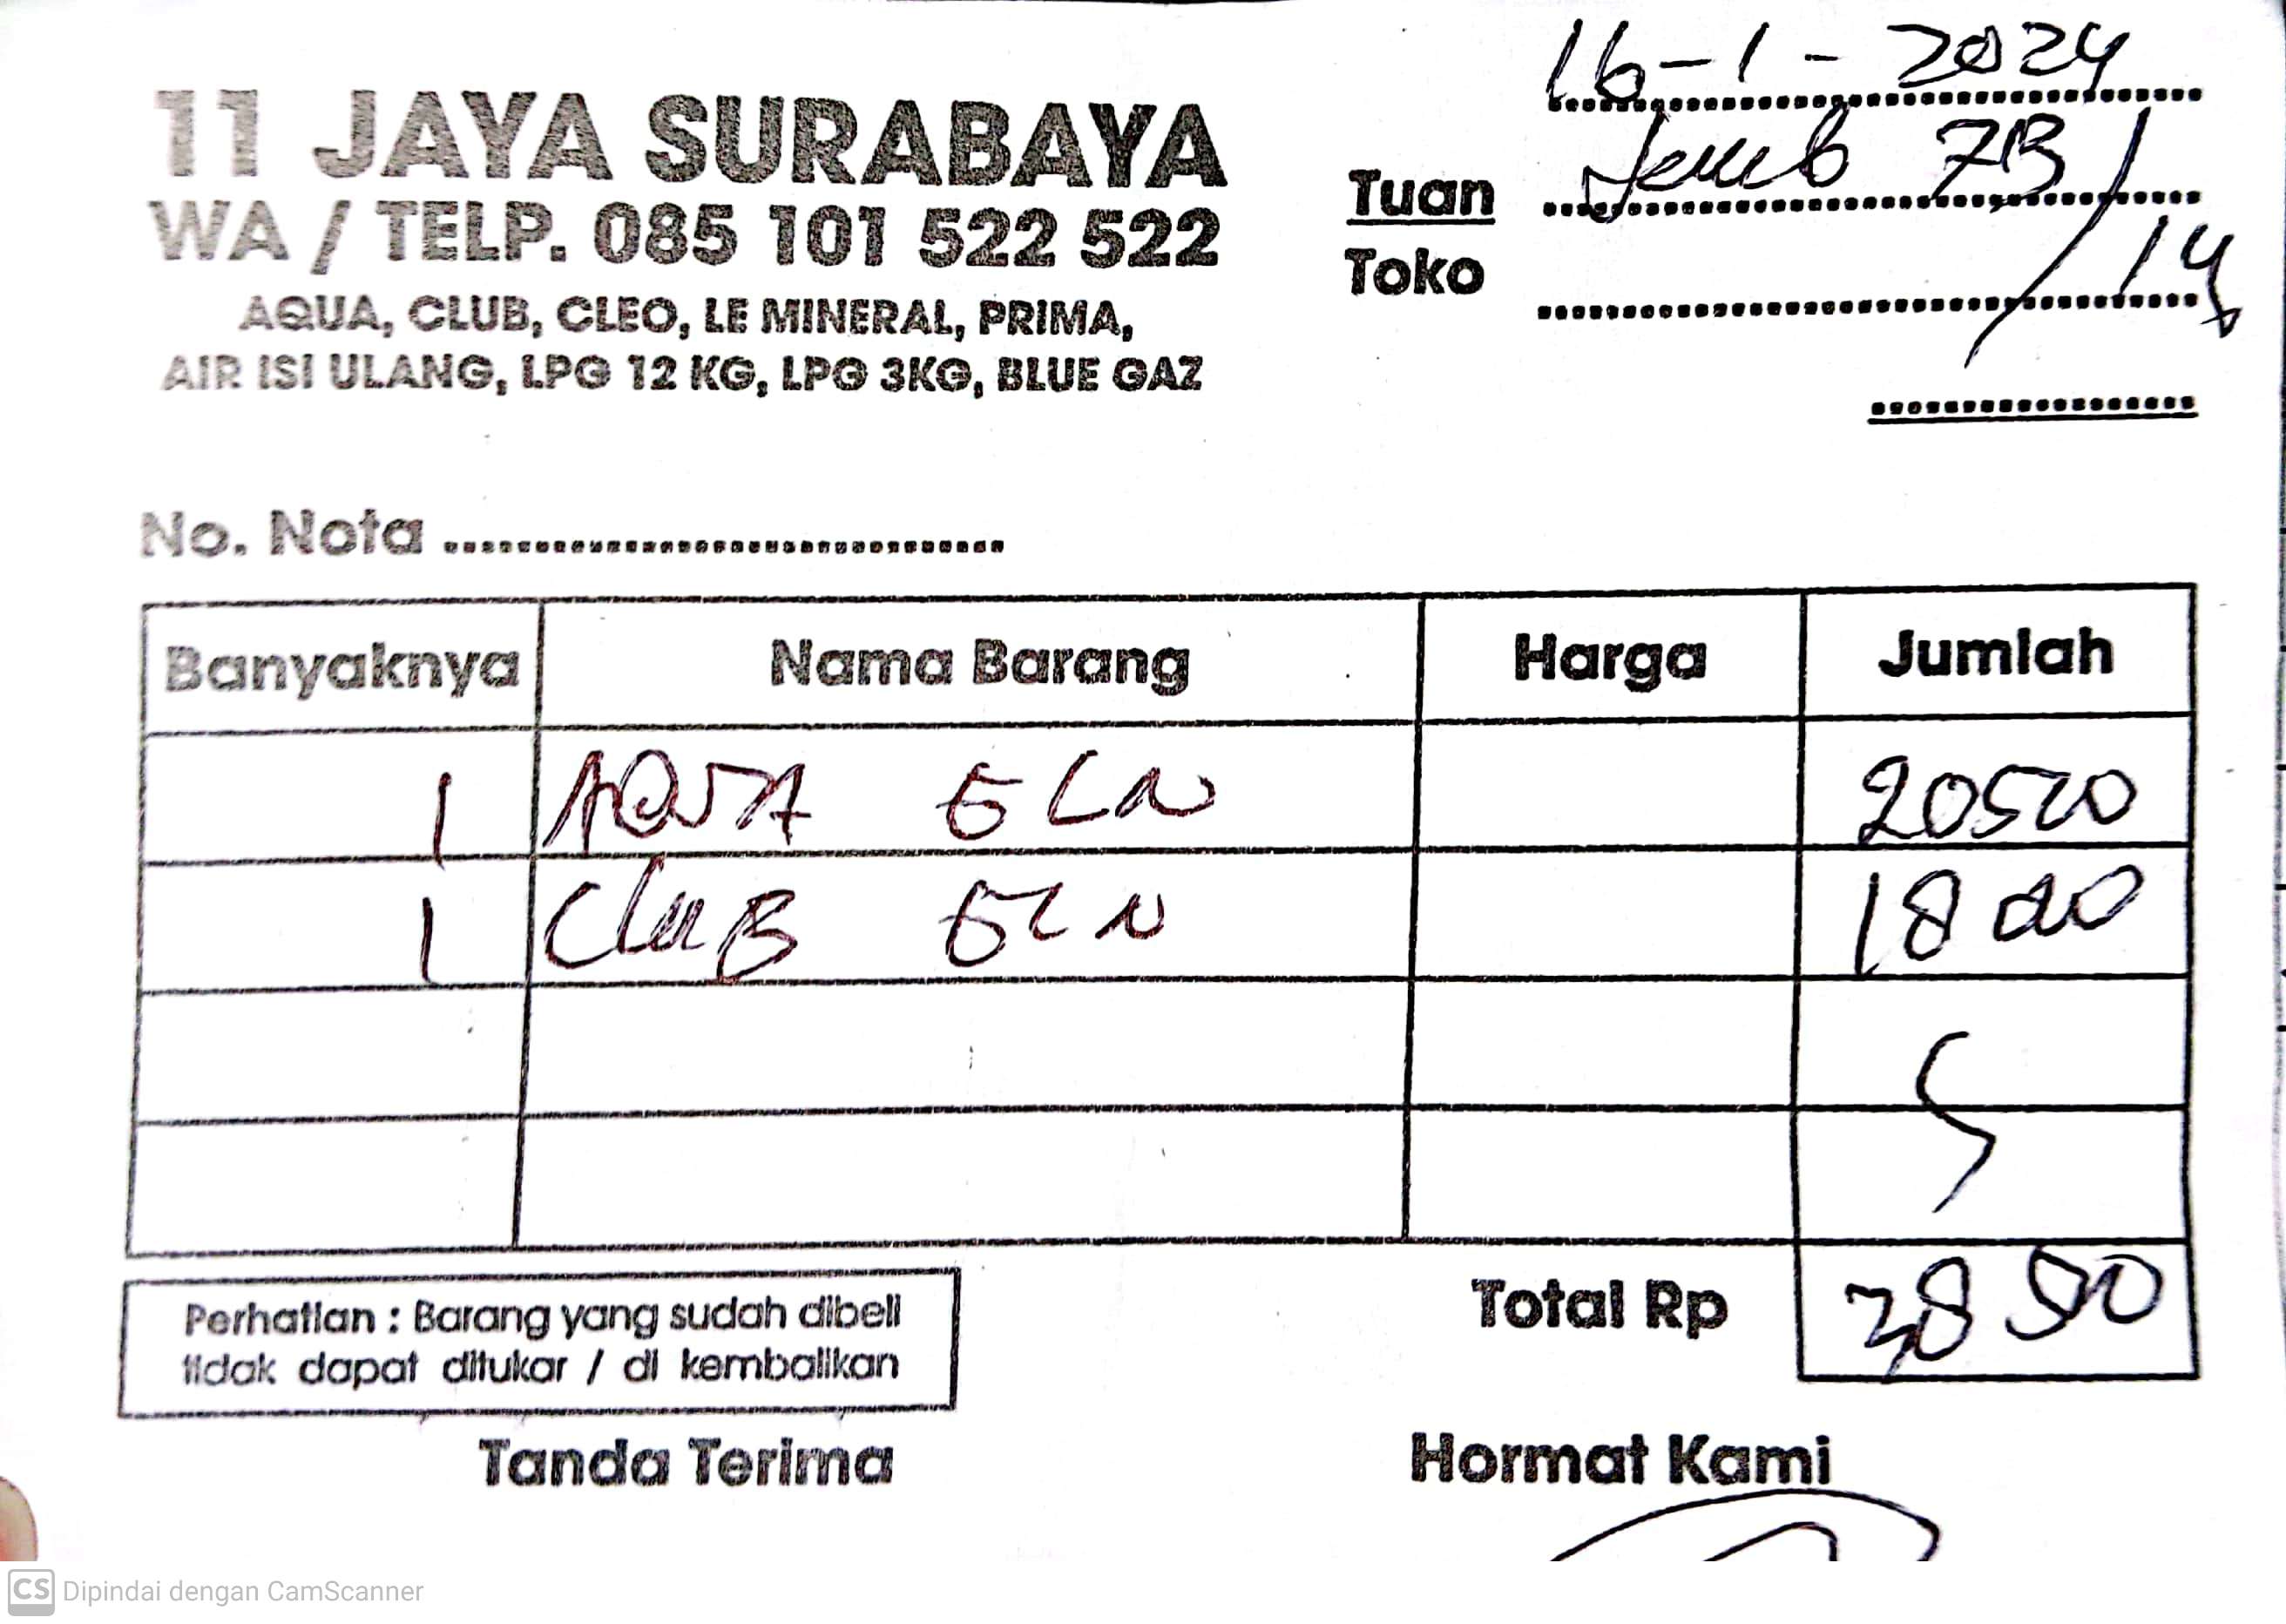 16-1-2024
11 JAYA SURABAYA
WA / TELP. 085 101 522 522
AQUA, CLUB, CLEO, LE MINERAL, PRIMA,
AIR ISI ULANG, LPG 12 KG, LPG 3KG, BLUE GAZ
Tuan 7B/
Toko /14
No. Nota
Banyaknya Nama Barang Harga Jumlah
1 AQUA GLN 20500
1 CluB GLN 18000
Total Rp 38500
Perhatian : Barang yang sudah dibeli
tidak dapat ditukar / di kembalikan
Tanda Terima Hormat Kami
CS Dipindai dengan CamScanner